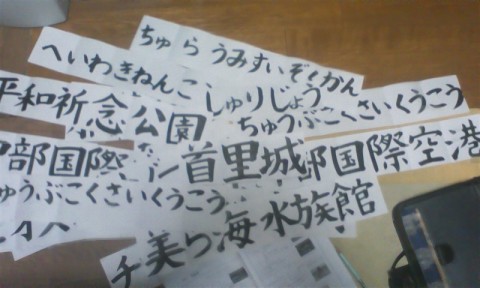 ちゅら うみすいぞくかん
へいわきねんこ
しゅりじょう
平和祈念公園
ちゅうぶこくさいくうこう
部国際
首里城
部国際空港
ゅうぶこくさいくうこう
美ら海水族館